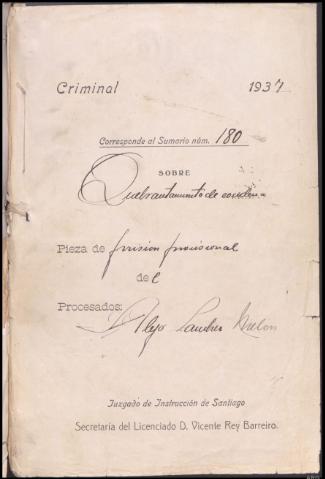 Criminal 1937
Corresponde al Sumario núm. 180
SOBRE
Quebrantamiento de condena
Pieza de prision provisional
del
Procesados:
Alejo Sanchez
Juzgado de Instrucción de Santiago
Secretaría del Licenciado D. Vicente Rey Barreiro.